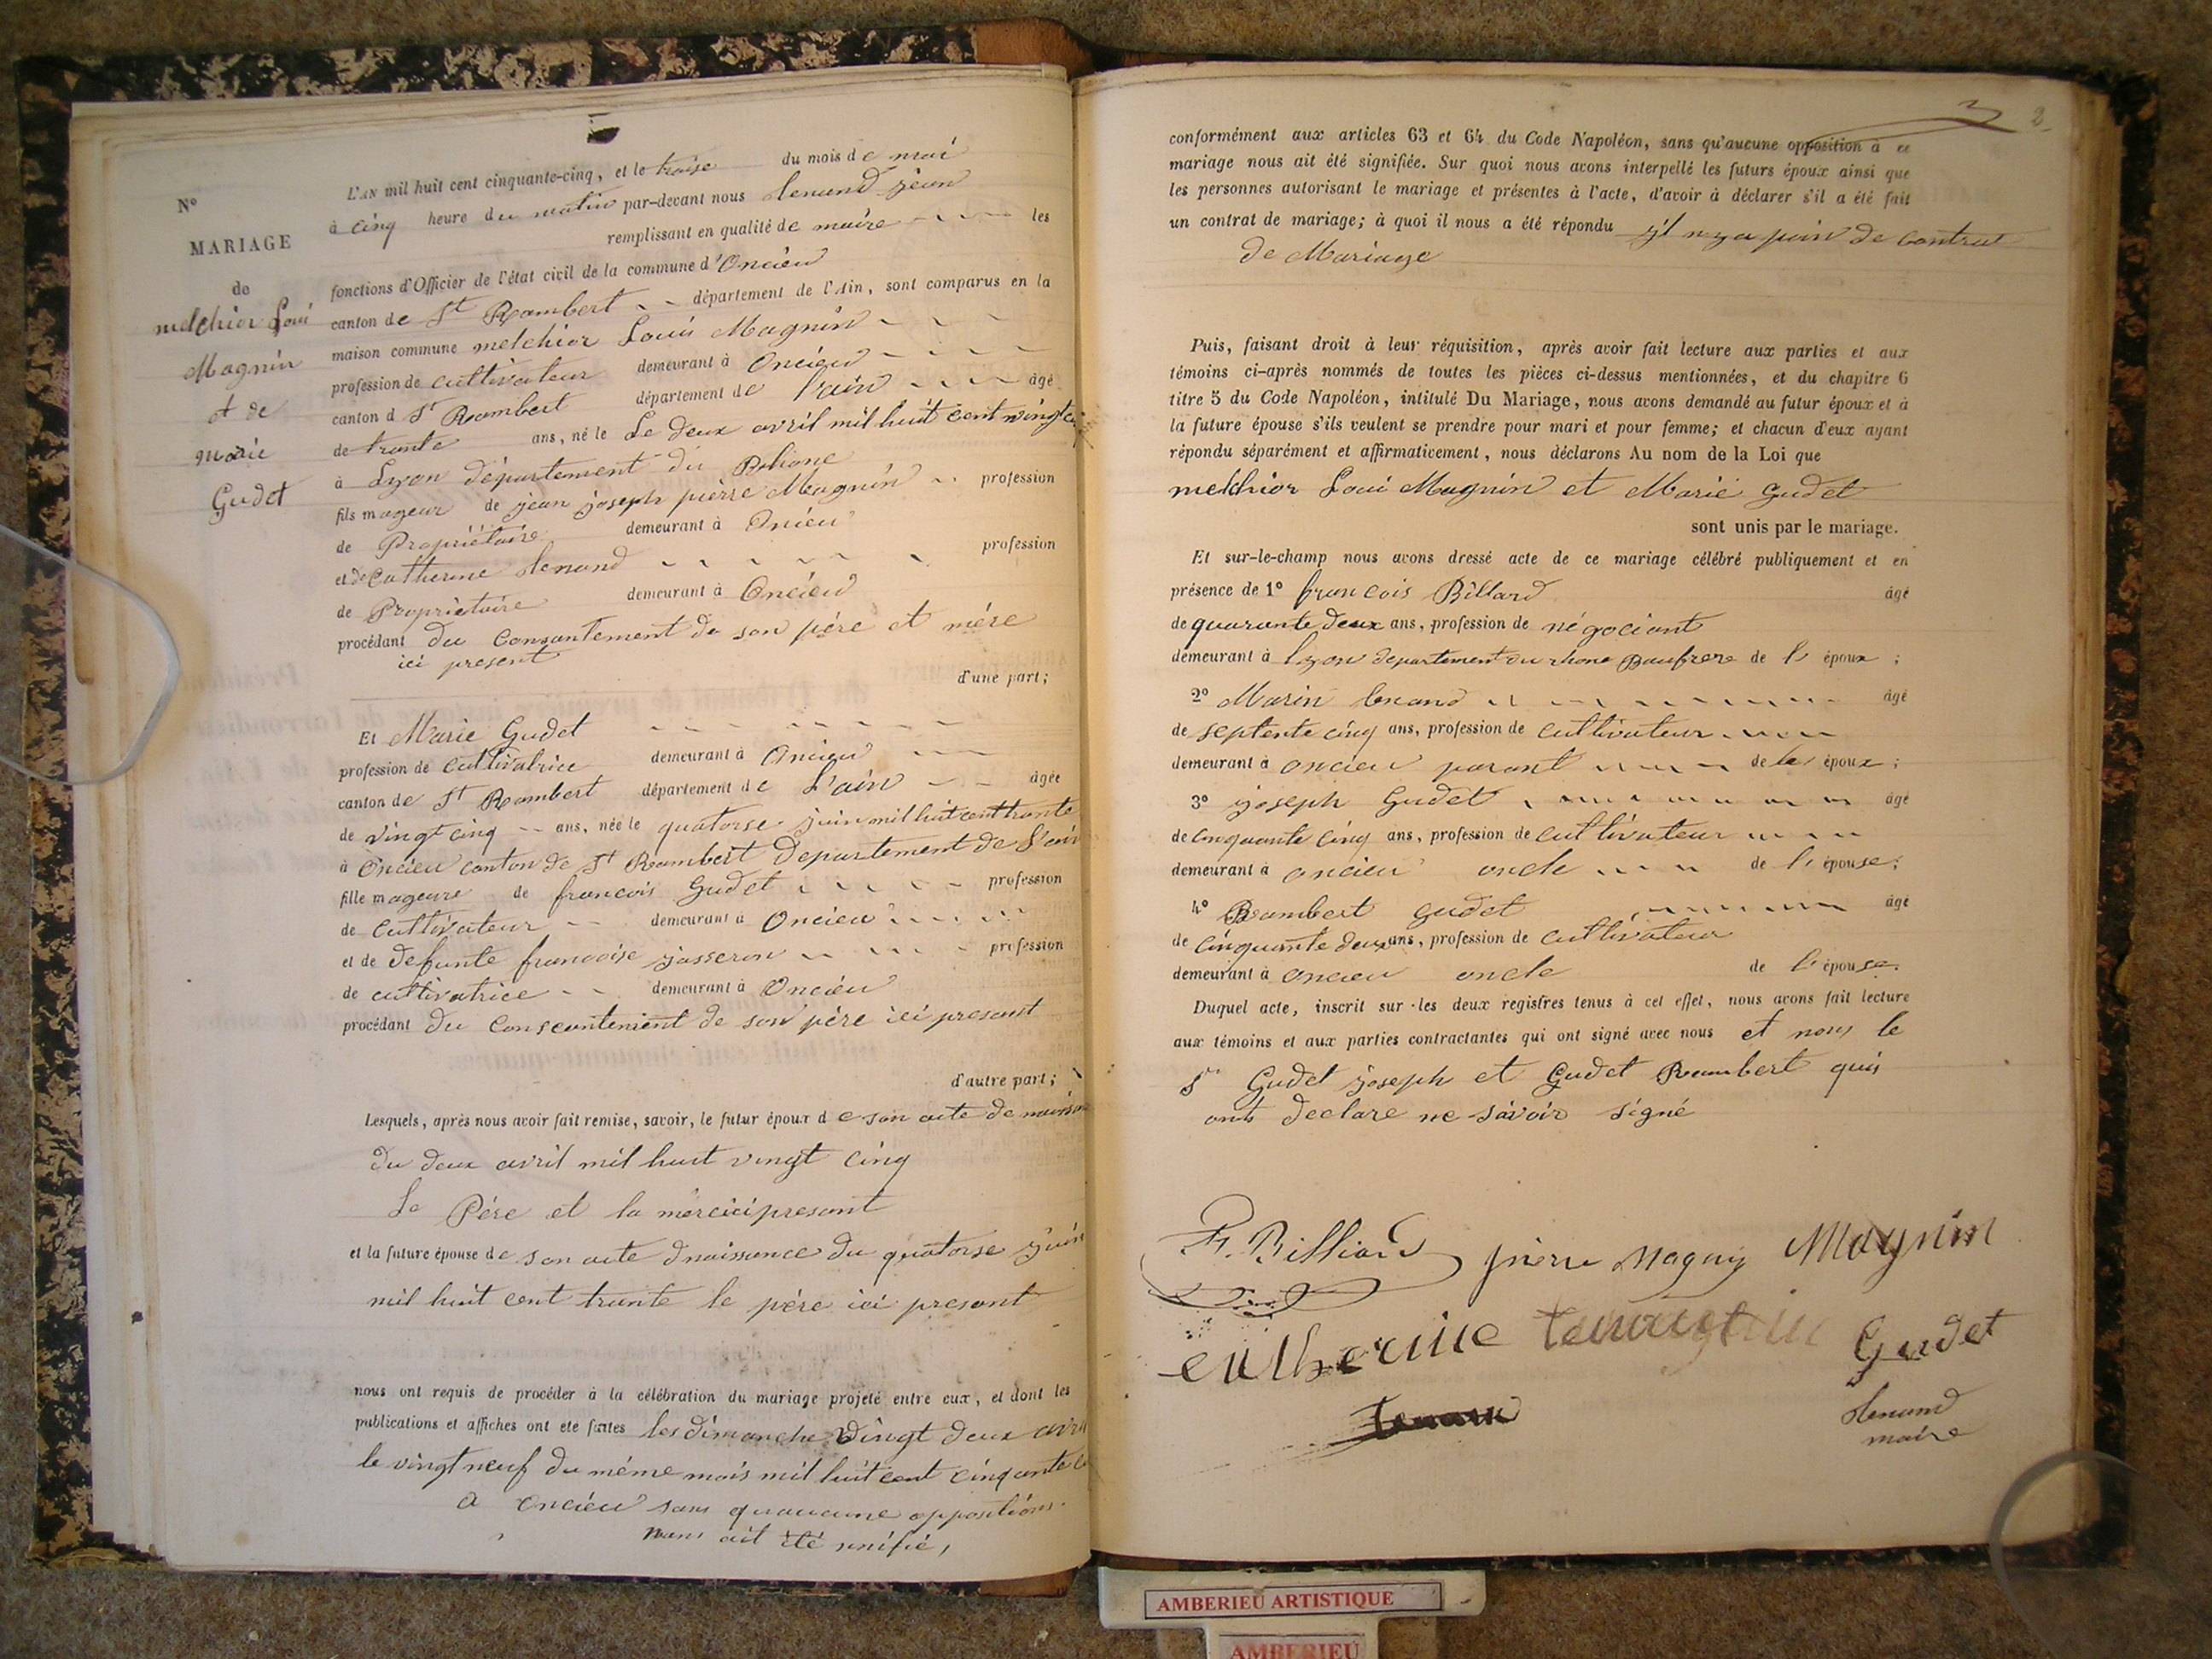 L'AN mil huit cent cinquante-cinq, et le troise du mois de mai
à cinq heure du matin par-devant nous tenand jean
remplissant en qualité de maire les
fonctions d'Officier de l'état civil de la commune d'Oncieu
canton de St Rambert département de l'Ain, sont comparus en la
maison commune melchior Louis Magnin
profession de cultivateur demeurant à Oncieu
canton d St Rambert département de l'ain âgé
de trante ans, né le Le deux avril mil huit cent vingt
à Lyon département du Rhone
fils mageur de jean joseph pièrre Magnin profession
de Propriétaire demeurant à Oncieu
et de Catherine tenand profession
de Propriétaire demeurant à Oncieu
procédant du Consantement de son père et mére
ici present
d'une part;
No
MARIAGE
de
melchior Loui
Magnin
et de
marie
Gudet
Et Marie Gudet
profession de Cultivatrice demeurant à Oncieu
canton de St Rambert département de L'ain âgée
de vingt cinq ans, née le quatorse juin mil huit cent trante
à Oncieu canton de St Rambert Departement de L'ain
fille mageure de francois Gudet profession
de Cultivateur demeurant à Oncieu
et de defunte francoise josseron profession
de cultivatrice demeurant à Oncieu
procédant du Conscentenient de son père ici presant
d'autre part;
Lesquels, après nous avoir fait remise, savoir, le futur époux de son acte de
du deux avril mil huit vingt cinq
Le Pére et la mére ici presant
et la future épouse de son acte dnaissance du quatorse juin
mil huit cent trante le père ici presant
nous ont requis de procéder à la célébration du mariage projeté entre eux, et dont les
publications et affiches ont été faites les dimanche vingt deux avril
le vingt neuf du méme mois mil huit cent cinqante
a Oncieu sans quaucune oppositions
nous ait été
2
conformément aux articles 63 et 64 du Code Napoléon, sans qu'aucune opposition à ce
mariage nous ait été signifiée. Sur quoi nous avons interpellé les futurs époux ainsi que
les personnes autorisant le mariage et présentes à l'acte, d'avoir à déclarer s'il a été fait
un contrat de mariage; à quoi il nous a été répondu y'l n'y a poin de Contrat
de Mariage
Puis, faisant droit à leur réquisition, après avoir fait lecture aux parties et aux
témoins ci-après nommés de toutes les pièces ci-dessus mentionnées, et du chapitre 6
titre 5 du Code Napoléon, intitulé Du Mariage, nous avons demandé au futur époux et à
la future épouse s'ils veulent se prendre pour mari et pour femme; et chacun d'eux ayant
répondu séparément et affirmativement, nous déclarons Au nom de la Loi que
melchior Loui Magnin et Marie Gudet
sont unis par le mariage.
Et sur-le-champ nous avons dressé acte de ce mariage célébré publiquement et en
présence de 1o francois Billard âgé
de quarante deux ans, profession de négociant
demeurant à lyon departement du rhone Baufrere de l' époux ;
2o Marin tenand âgé
de septente cinq ans, profession de Cultivateur
demeurant à oncieu parant de le époux ;
3o joseph Gudet âgé
de cinquante cinq ans, profession de cultivateur
demeurant à oncieu oncle de l' épouse;
4o Rambert gudet âgé
de cinquante deux ans, profession de cultivateur
demeurant à oncieu oncle de l' épouse.
Duquel acte, inscrit sur les deux registres tenus à cet effet, nous avons fait lecture
aux témoins et aux parties contractantes qui ont signé avec nous et non le
Sr Gudet joseph et Gudet Rambert qui
ont declare ne savoir signé
F. Billiard pierre Magnin Magnin
catherine Gudet
tenand
maire
AMBERIEU ARTISTIQUE
AMBERIEU